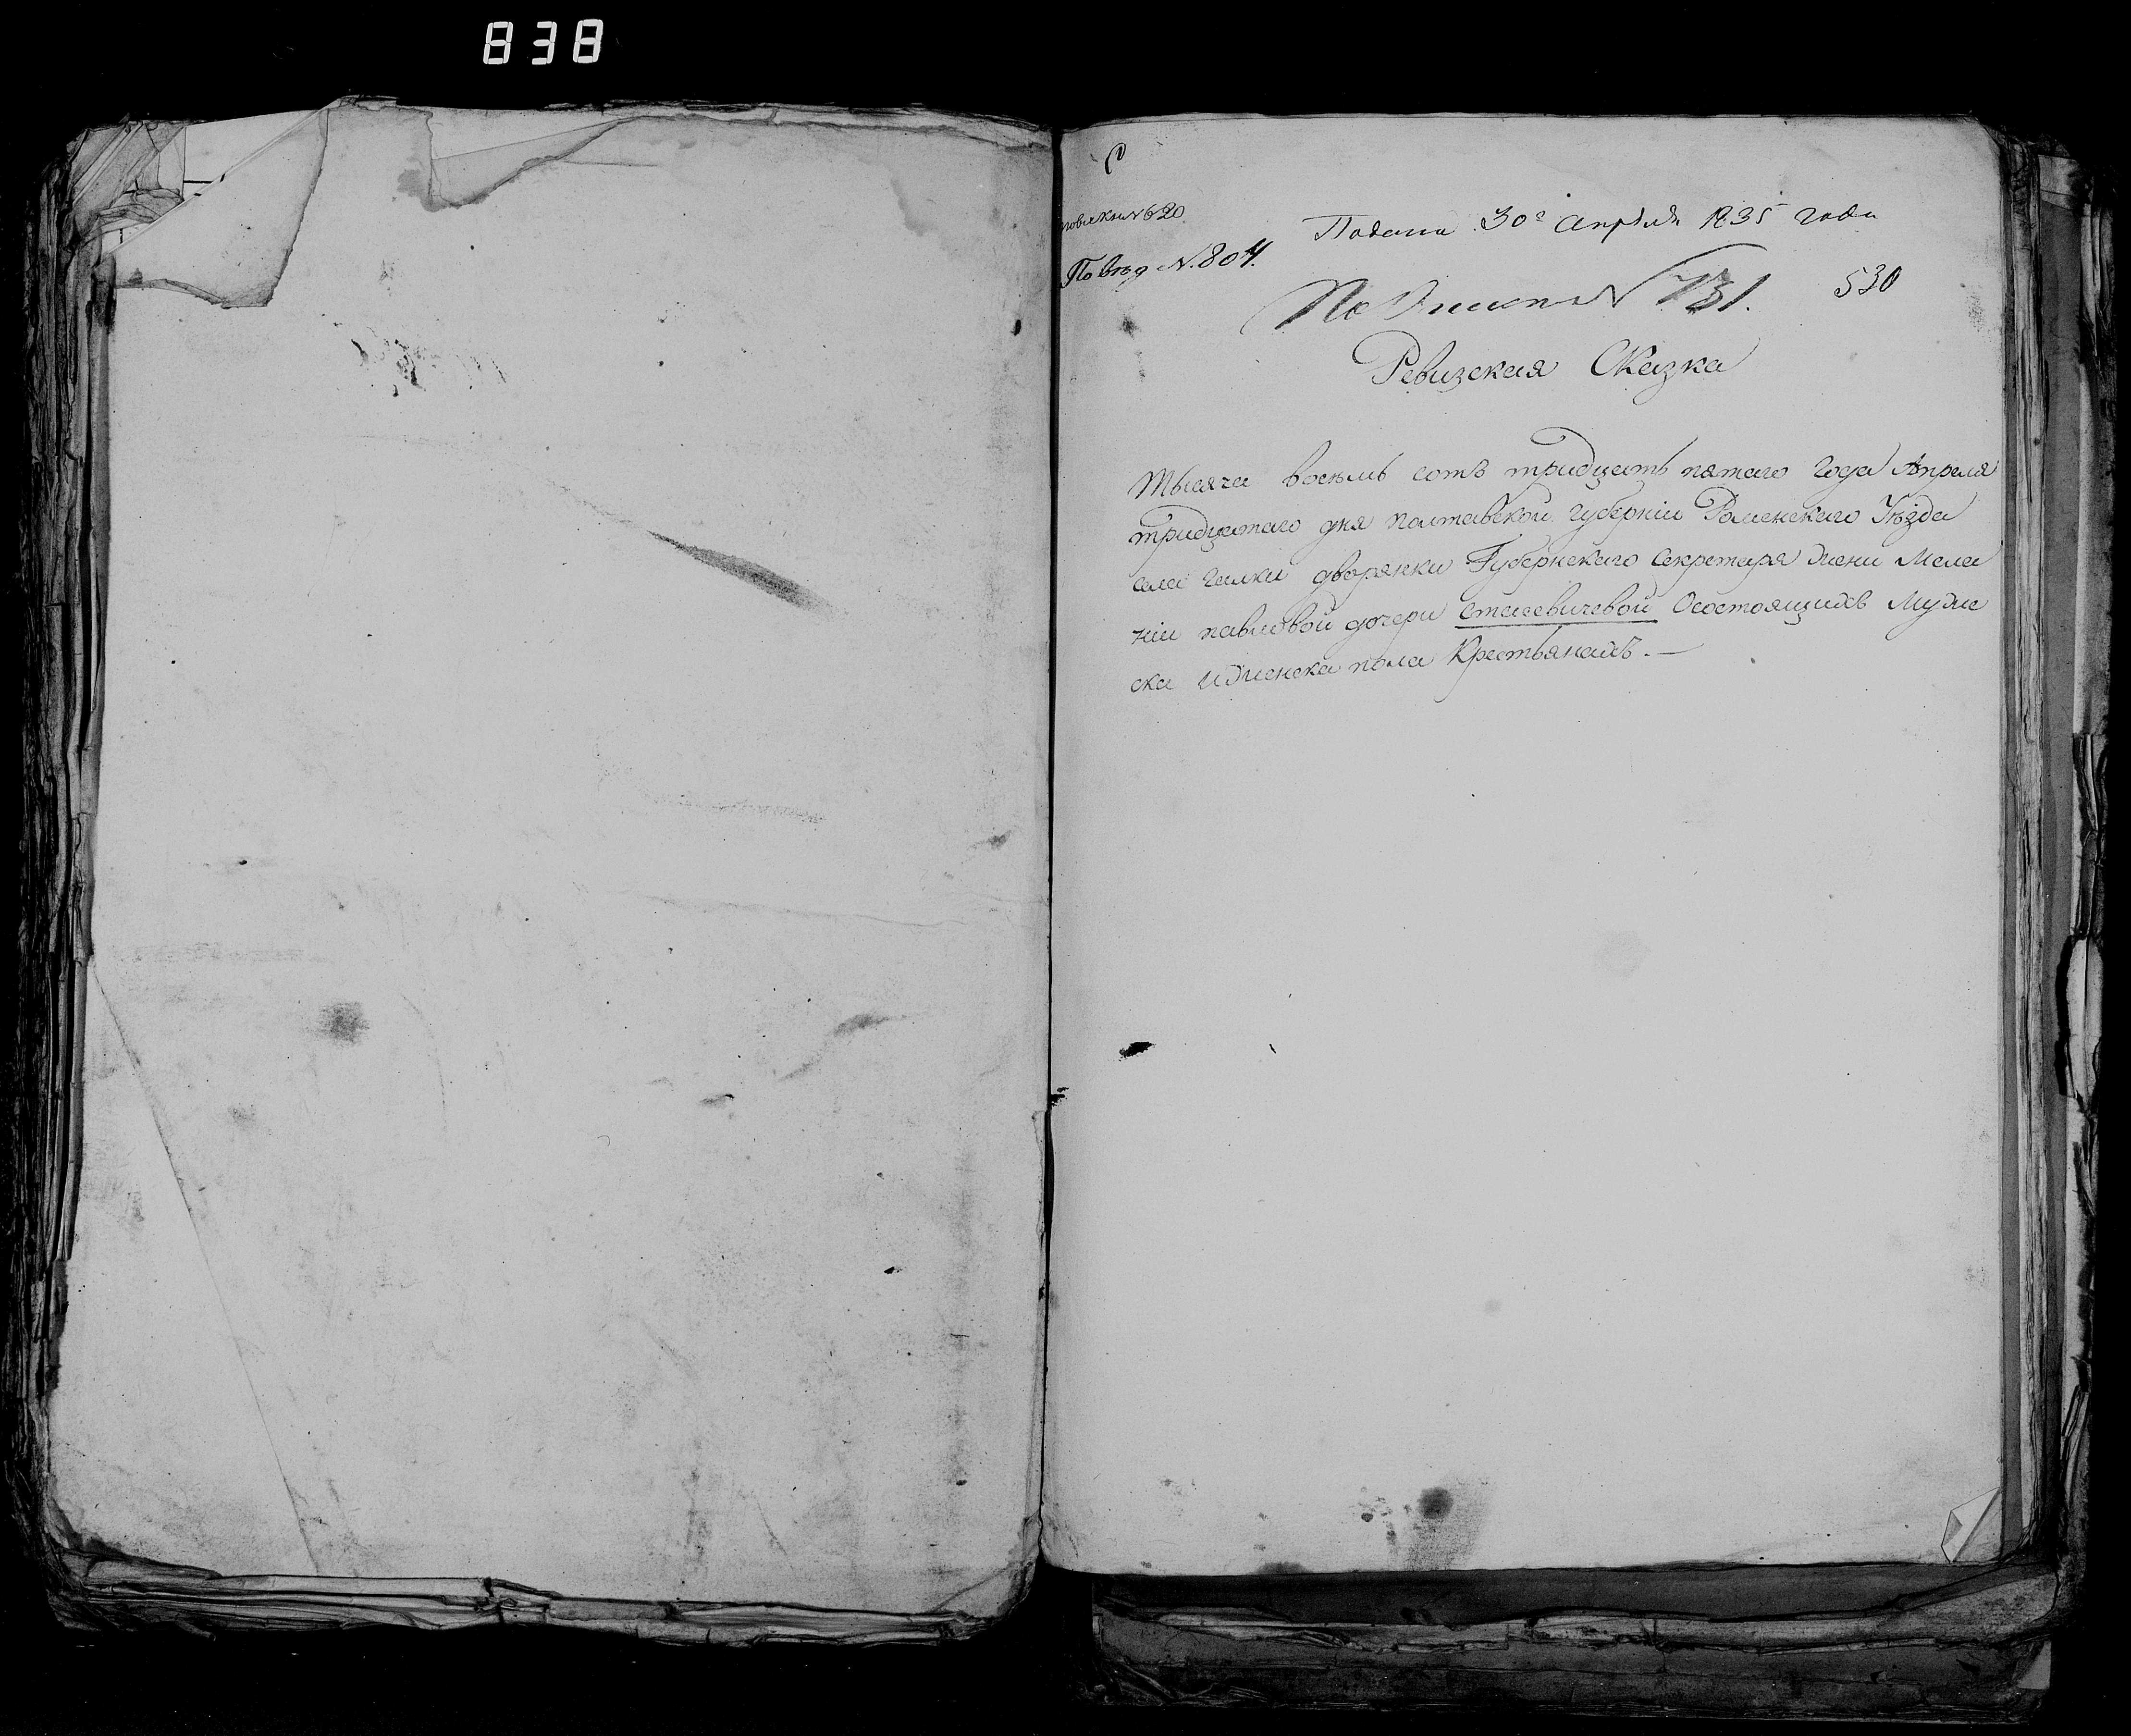 838
С
новая кн N 620
По вѣд N. 804.
Подана 30г Апрѣля 1835 года
По N 731.
530
Ревизская Сказка
Тысяча восемь сотъ тридцать пятаго года Апреля
тридцатаго дня полтавской губерніи Роменскаго Уѣзда
села Галки дворянки Губернскаго Секретаря жени Мела
ніи павловой дочери Стасевичевой Осостоящихъ Муже
ска иженска пола Крестьянахъ. —